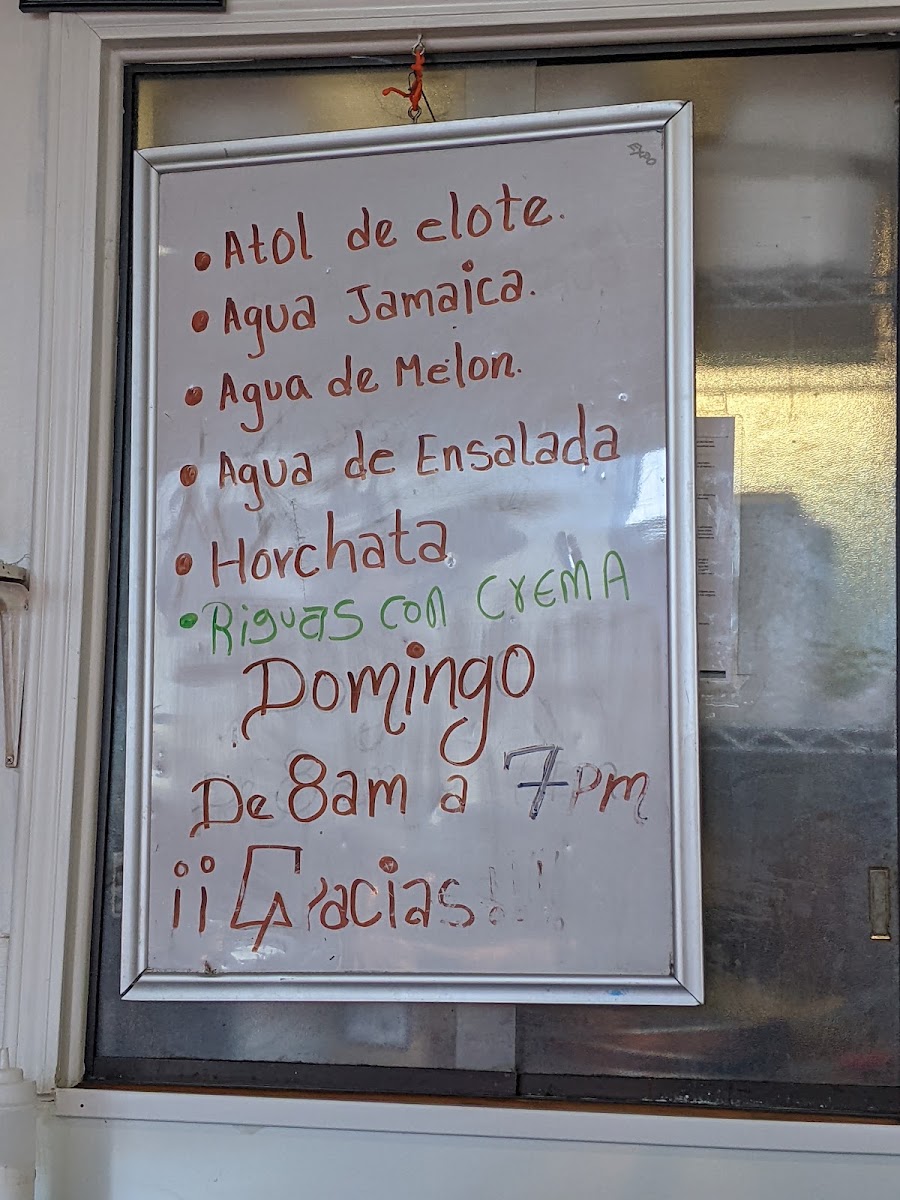 • Atol de elote.
• Agua Jamaica.
• Agua de Melon.
• Agua de Ensalada
• Horchata
• Riguas con CrEMA
Domingo
De 8am a 7pm
¡¡Gracias!!!!